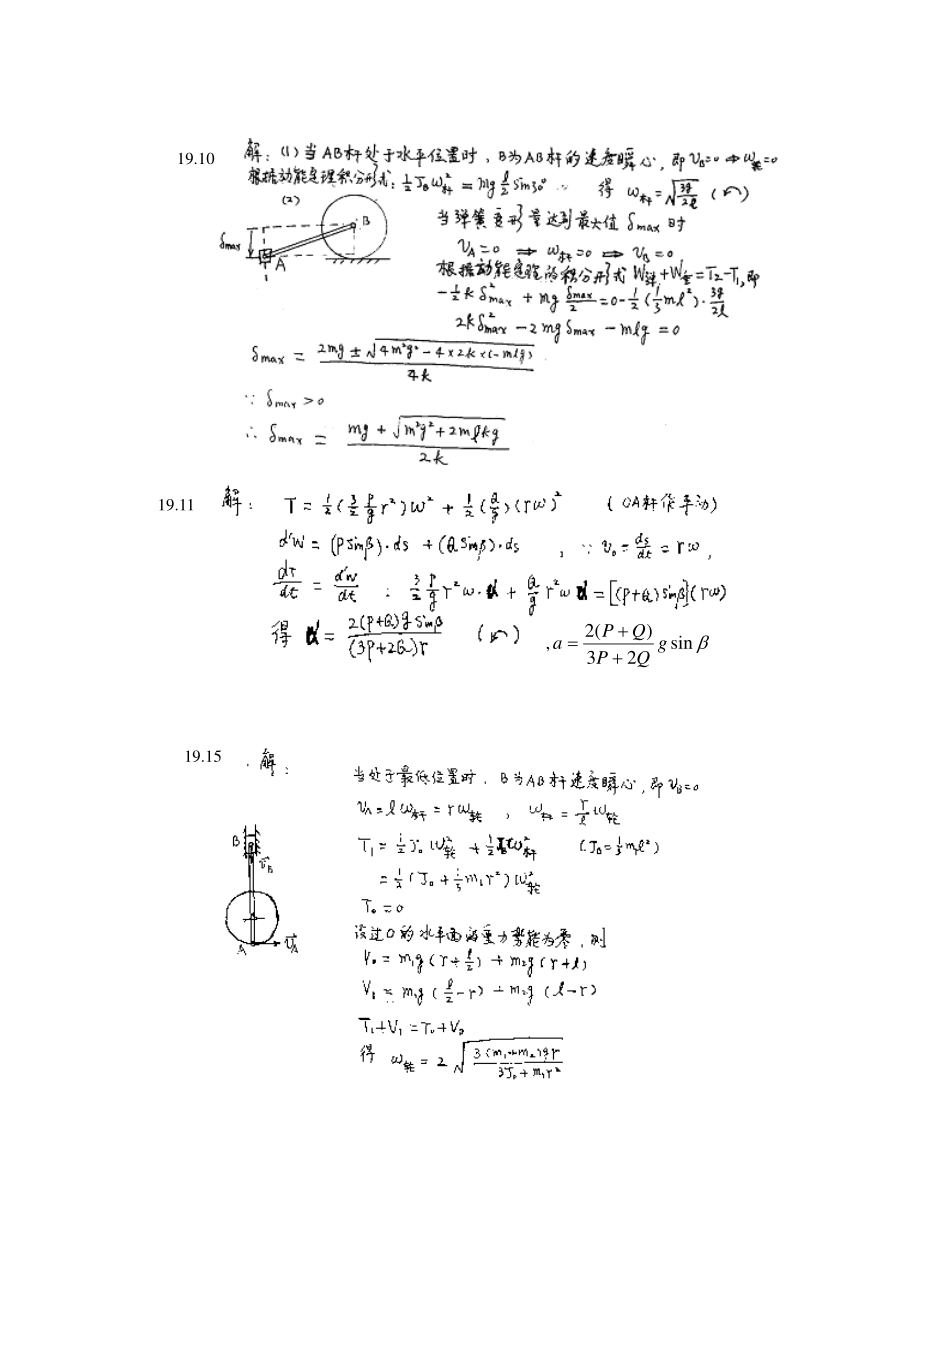 19.10 解：(1) 当AB杆处于水平位置时，B为AB杆的速度瞬心，即 V_B=0 ⇒ ω轮=0
根据动能定理积分形式：½J_Bω杆² = mg l/2 sin30° ∴ 得 ω杆=√(3g/2l) (↶)
(2)
当弹簧变形量达到最大值 δmax 时
δmax
B
A
V_A=0 ⇒ ω杆=0 ⇒ V_B=0
根据动能定理的积分形式 W弹+W重=T₂-T₁,即
-½kδ²max + mg δmax/2 = 0-½(⅓ml²)·3g/2l
2kδ²max - 2mgδmax - mlg = 0
δmax = (2mg ± √(4m²g² - 4×2k×(-mlg)))/4k
∵ δmax >0
∴ δmax = (mg + √(m²g²+2mlkg))/2k
19.11 解： T = ½(3/2 P/g r²)ω² + ½(Q/g)(rω)² (OA杆作平动)
d'W = (P sinβ)·ds + (Q sinβ)·ds , ∵ v₀ = ds/dt = rω,
dT/dt = d'W/dt : 3/2 P/g r²ω·α + Q/g r²ωα = [(P+Q) sinβ](rω)
得 α = 2(P+Q)g sinβ/(3P+2Q)r (↶) ,a = 2(P+Q)/(3P+2Q) g sin β
19.15 . 解：
当处于最低位置时，B为AB杆速度瞬心，即 V_B=0
V_A = lω杆 = rω轮 , ω杆 = r/l ω轮
B
V_B
A
V_A
T₁ = ½J₀ω轮² + ½J_Bω杆² (J_B=⅓m₁l²)
= ½(J₀+⅓m₁r²)ω轮²
T₀ = 0
设过O的水平面的重力势能为零，则
V₀ = m₁g(r+l/2) + m₂g(r+l)
V₁ = m₁g(l/2-r) + m₂g(l-r)
T₁+V₁ = T₀+V₀
得 ω轮 = 2√(3(m₁+m₂)gr/(3J₀+m₁r²))